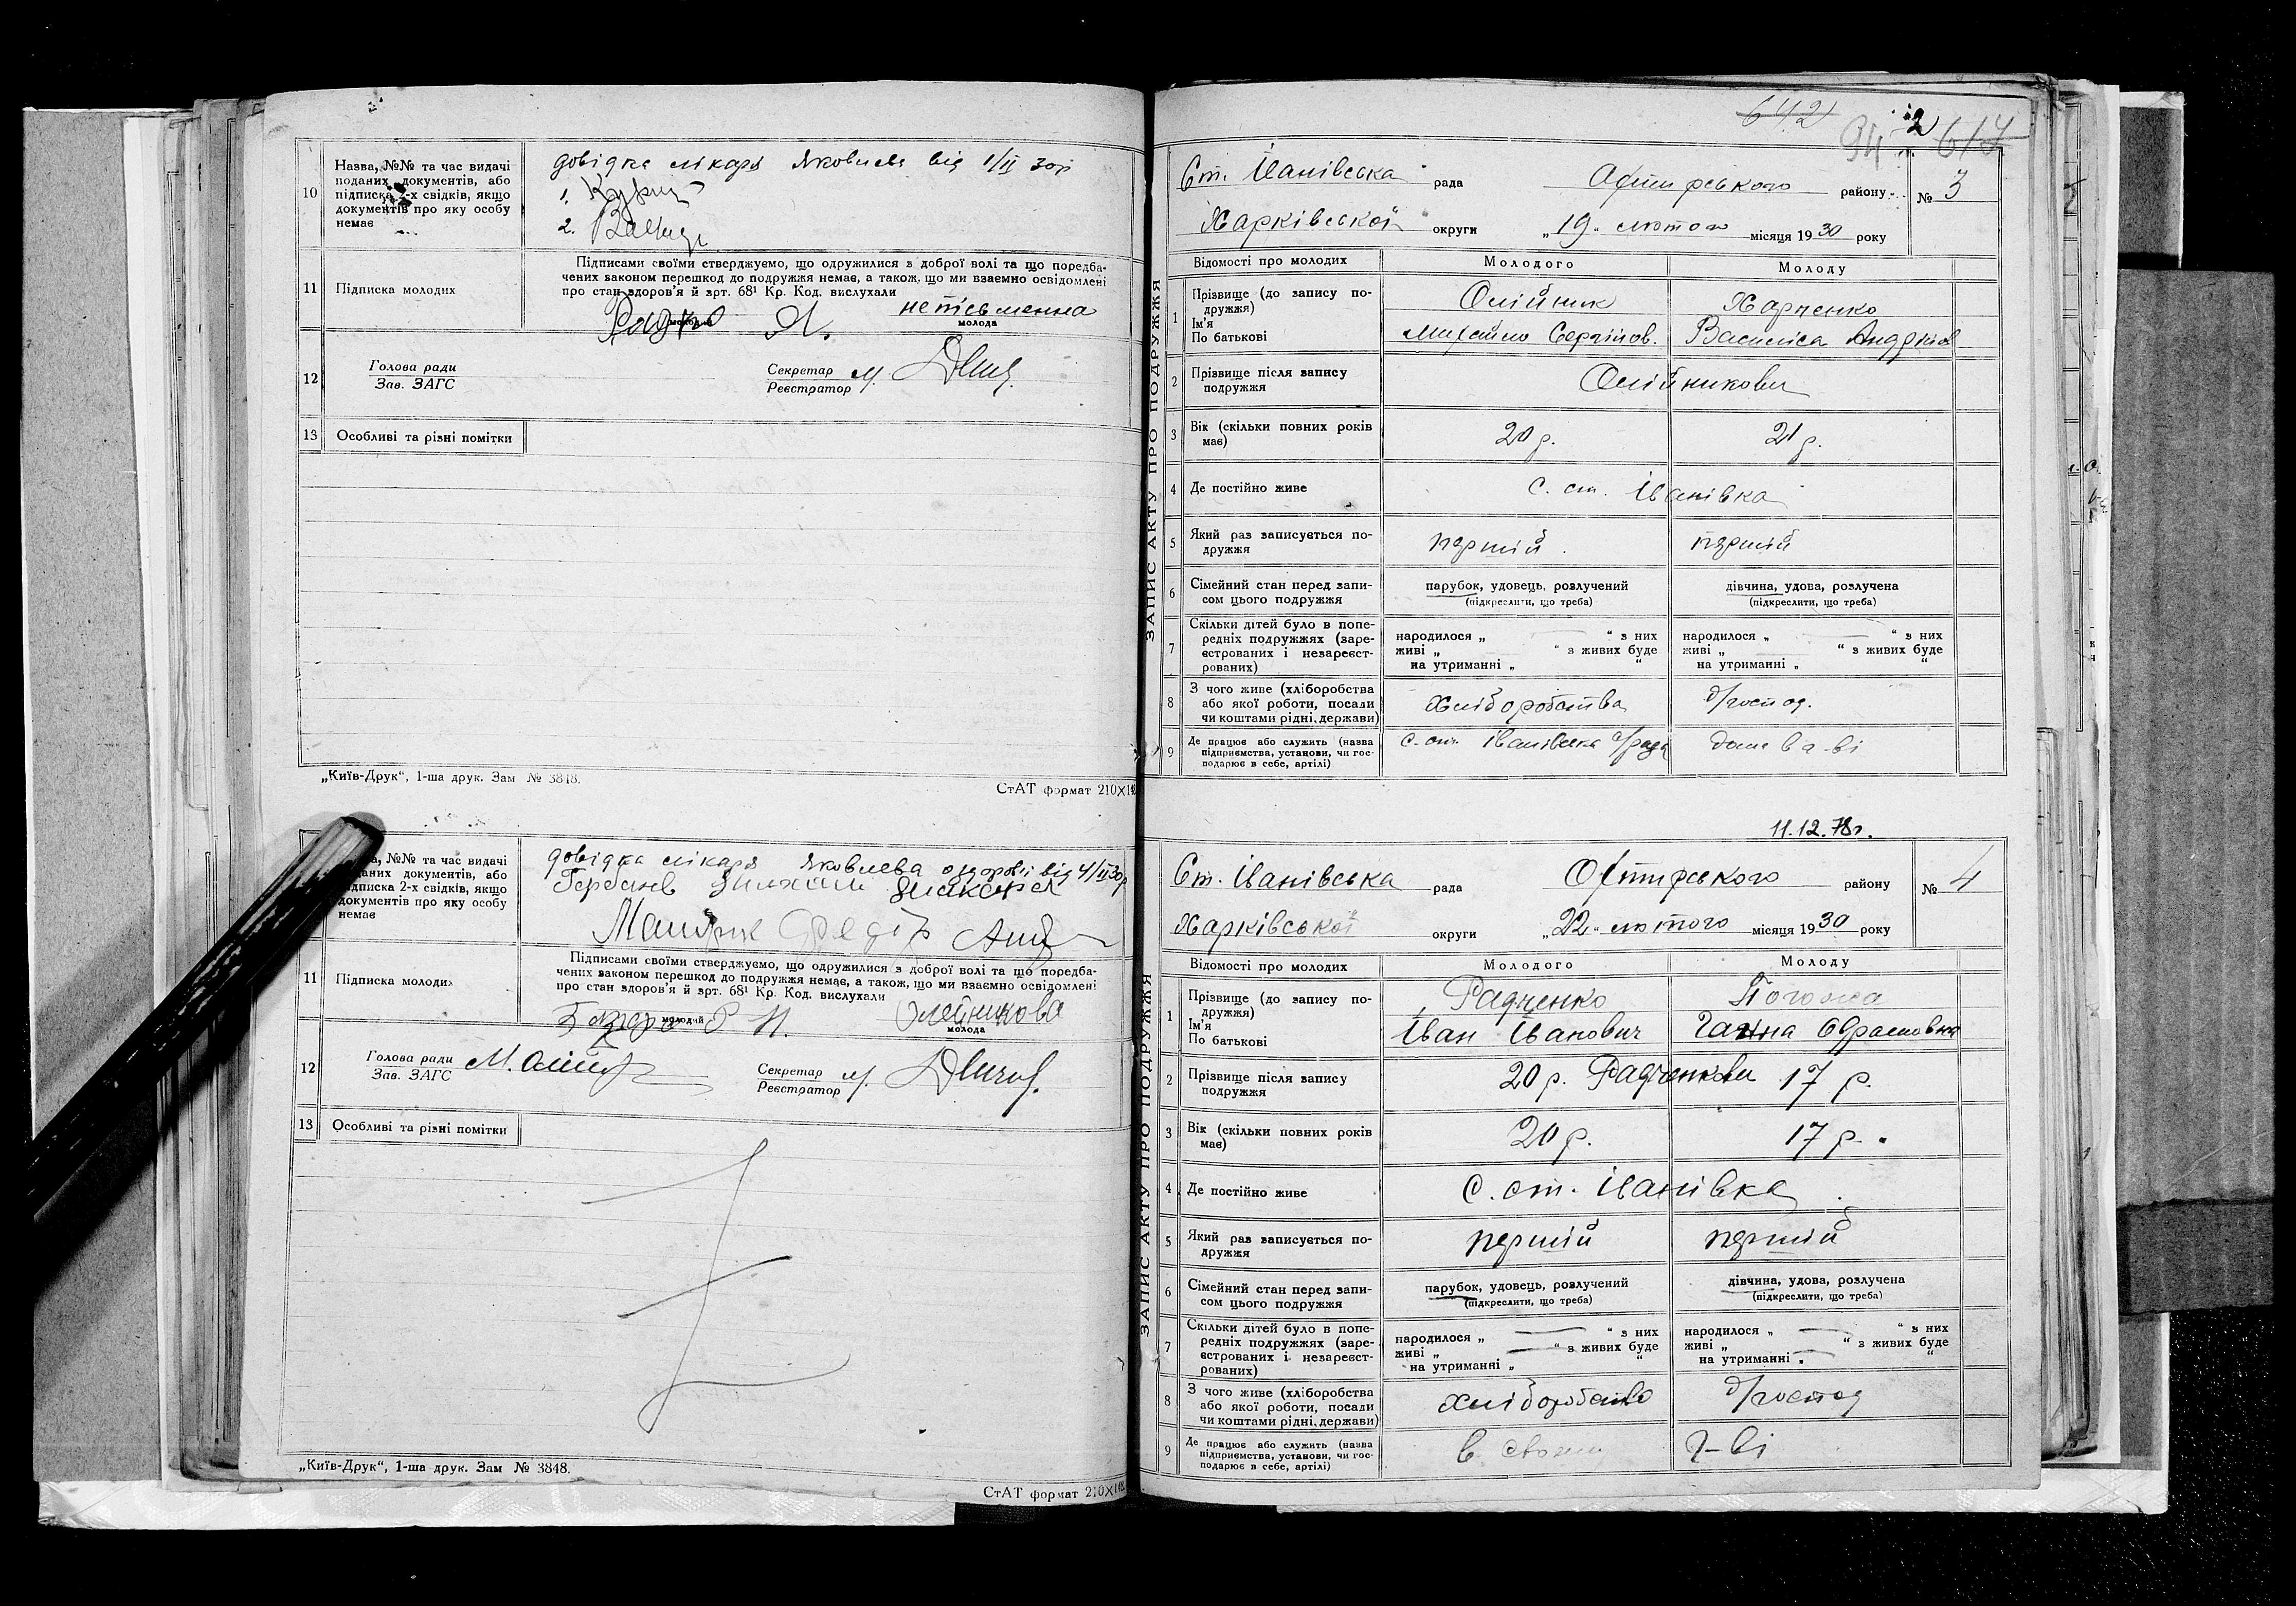 10 Назва, №№ та час видачі
поданих документів, або
підписка 2-х свідків, якщо
документів про яку особу
немає
довідка лікаря Яковлева від 1/II 30р
1.
2.
11 Підписка молодих
Підписами своїми стверджуємо, що одружилися з доброї волі та що поредба-
чених законом перешкод до подружжя немає, а також, що ми взаємно освідомлені
про стан здоров'я й зрт. 68¹ Кр. Код. вислухали
неписьменна
молода
12 Голова ради
Зав. ЗАГС
Секретар
Реєстратор
13 Особливі та різні помітки
„Київ-Друк“, 1-ша друк. Зам № 3848.
СтАТ формат 210X148
, №№ та час видачі
даних документів, або
підписка 2-х свідків, якщо
документів про яку особу
немає
довідка лікаря Яковлева о здоровії від 4/II 30р
11 Підписка молодих
Підписами своїми стверджуємо, що одружилися з доброї волі та що поредба-
чених законом перешкод до подружжя немає, а також, що ми взаємно освідомлені
про стан здоров'я й зрт. 68¹ Кр. Код. вислухали
молодий
Олейникова
молода
12 Голова ради
Зав. ЗАГС
Секретар
Реєстратор
13 Особливі та різні помітки
„Київ-Друк“, 1-ша друк. Зам № 3848.
СтАТ формат 210X148
642
94 2 617
ЗАПИС АКТУ ПРО ПОДРУЖЖЯ
Ст. Іванівська рада Охтирського району № 3
Харківської округи „19“ лютого місяця 1930 року
Відомості про молодих Молодого Молоду
1 Прізвище (до запису по-
дружжя)
Ім'я
По батькові
Олійник Харченко
Михайло Сергійов. Василіса Андріїв
2 Прізвище після запису
подружжя
Олійникови
3 Вік (скільки повних років
має)
20 р. 21 р.
4 Де постійно живе с. ст. Іванівка
5 Який раз записується по-
дружжя
перший перший
6 Сімейний стан перед запи-
сом цього подружжя
парубок, удовець, розлучений дівчина, удова, розлучена
(підкреслити, що треба) (підкреслити, що треба)
7 Скільки дітей було в попе-
редніх подружжях (заре-
єстрованих і незареєст-
рованих)
народилося „ — “ з них народилося „ — “ з них
живі „ “ з живих буде живі „ “ з живих буде
на утриманні „ “ на утриманні „ “
8 З чого живе (хліборобства
або якої роботи, посади
чи коштами рідні, держави)
хліборобства д/господ.
9 Де працює або служить (назва
підприємства, установи, чи гос-
подарює в себе, артілі)
с. ст. Іванівська с/рада
11.12.78г.
ЗАПИС АКТУ ПРО ПОДРУЖЖЯ
Ст. Іванівська рада Охтирського району № 4
Харківської округи „22“ лютого місяця 1930 року
Відомості про молодих Молодого Молоду
1 Прізвище (до запису по-
дружжя)
Ім'я
По батькові
Радченко
Іван Іванович Ганна
2 Прізвище після запису
подружжя
20 р. Радченкови 17 р.
3 Вік (скільки повних років
має)
20 р. 17 р.
4 Де постійно живе С. ст. Іванівка
5 Який раз записується по-
дружжя
перший перший
6 Сімейний стан перед запи-
сом цього подружжя
парубок, удовець, розлучений дівчина, удова, розлучена
(підкреслити, що треба) (підкреслити, що треба)
7 Скільки дітей було в попе-
редніх подружжях (заре-
єстрованих і незареєст-
рованих)
народилося „ — “ з них народилося „ — “ з них
живі „ — “ з живих буде живі „ “ з живих буде
на утриманні „ “ на утриманні „ “
8 З чого живе (хліборобства
або якої роботи, посади
чи коштами рідні, держави)
хліборобство д/господ
9 Де працює або служить (назва
підприємства, установи, чи гос-
подарює в себе, артілі)
в своїм г-ві